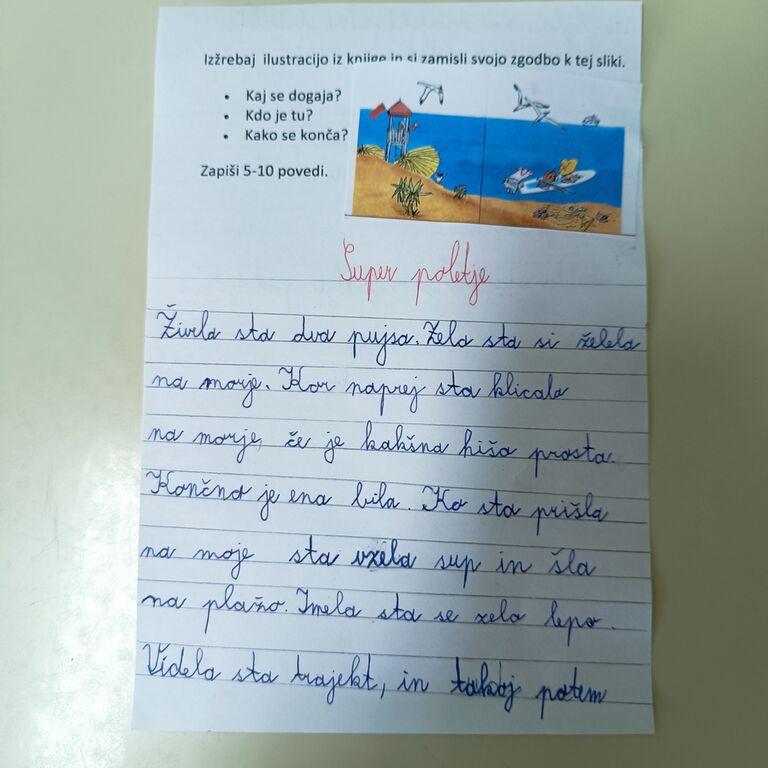 Izžrebaj ilustracijo iz knjige in si zamisli svojo zgodbo k tej sliki.
• Kaj se dogaja?
• Kdo je tu?
• Kako se konča?
Zapiši 5-10 povedi.
Super poletje
Živela sta dva pujsa. Zelo sta si želela
na morje. Kar naprej sta klicala
na morje če je kakšna hiša prosta.
Končno je ena bila. Ko sta prišla
na moje sta vzela sup in šla
na plažo. Imela sta se zelo lepo.
Videla sta trajekt, in takoj potem